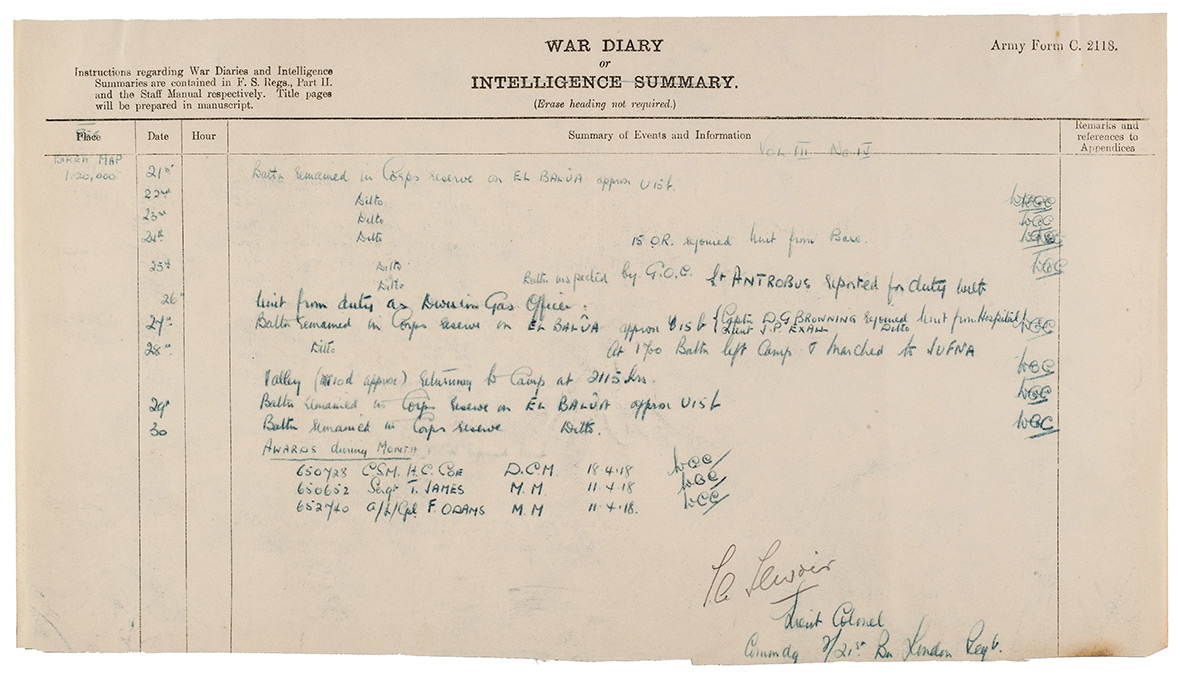 WAR DIARY
or
INTELLIGENCE SUMMARY.
(Erase heading not required.)
Army Form C. 2118.
Instructions regarding War Diaries and Intelligence
Summaries are contained in F. S. Regs., Part II.
and the Staff Manual respectively. Title pages
will be prepared in manuscript.
Place Date Hour Summary of Events and Information Remarks and references to Appendices
Vol III No IV
MAP
1:20,000
21st Battn remained in Corps reserve on EL BALÛA approx U15b.
22nd Ditto WGC
23rd Ditto WGC
24th Ditto 15 O.R. rejoined Unit from Base. WGC
25th Ditto WGC
Ditto Battn inspected by G.O.C. Lt ANTROBUS reported for duty with
26 Unit from duty as Division Gas Officer.
27th Battn remained in Corps reserve on EL BALÛA approx U15b { Captn D.G. BROWNING rejoined Unit from Hospital } WGC
Lieut J.P. EXALL Ditto
28th Ditto At 1700 Battn left Camp & marched to JUFNA WGC
Valley ( approx) returning to Camp at 2115 hrs. WGC
29th Battn remained in Corps reserve on EL BALÛA approx U15b
30 Battn remained in Corps reserve Ditto. WGC
AWARDS during MONTH
650728 C.S.M. H.C. COE D.C.M. 18.4.18 WGC
650652 Sergt T. JAMES M.M 11.4.18 WGC
652740 A/L/Cpl F. ODAMS M.M 11.4.18. WGC
Lieut Colonel
Commdg 2/21st Bn London Regt.